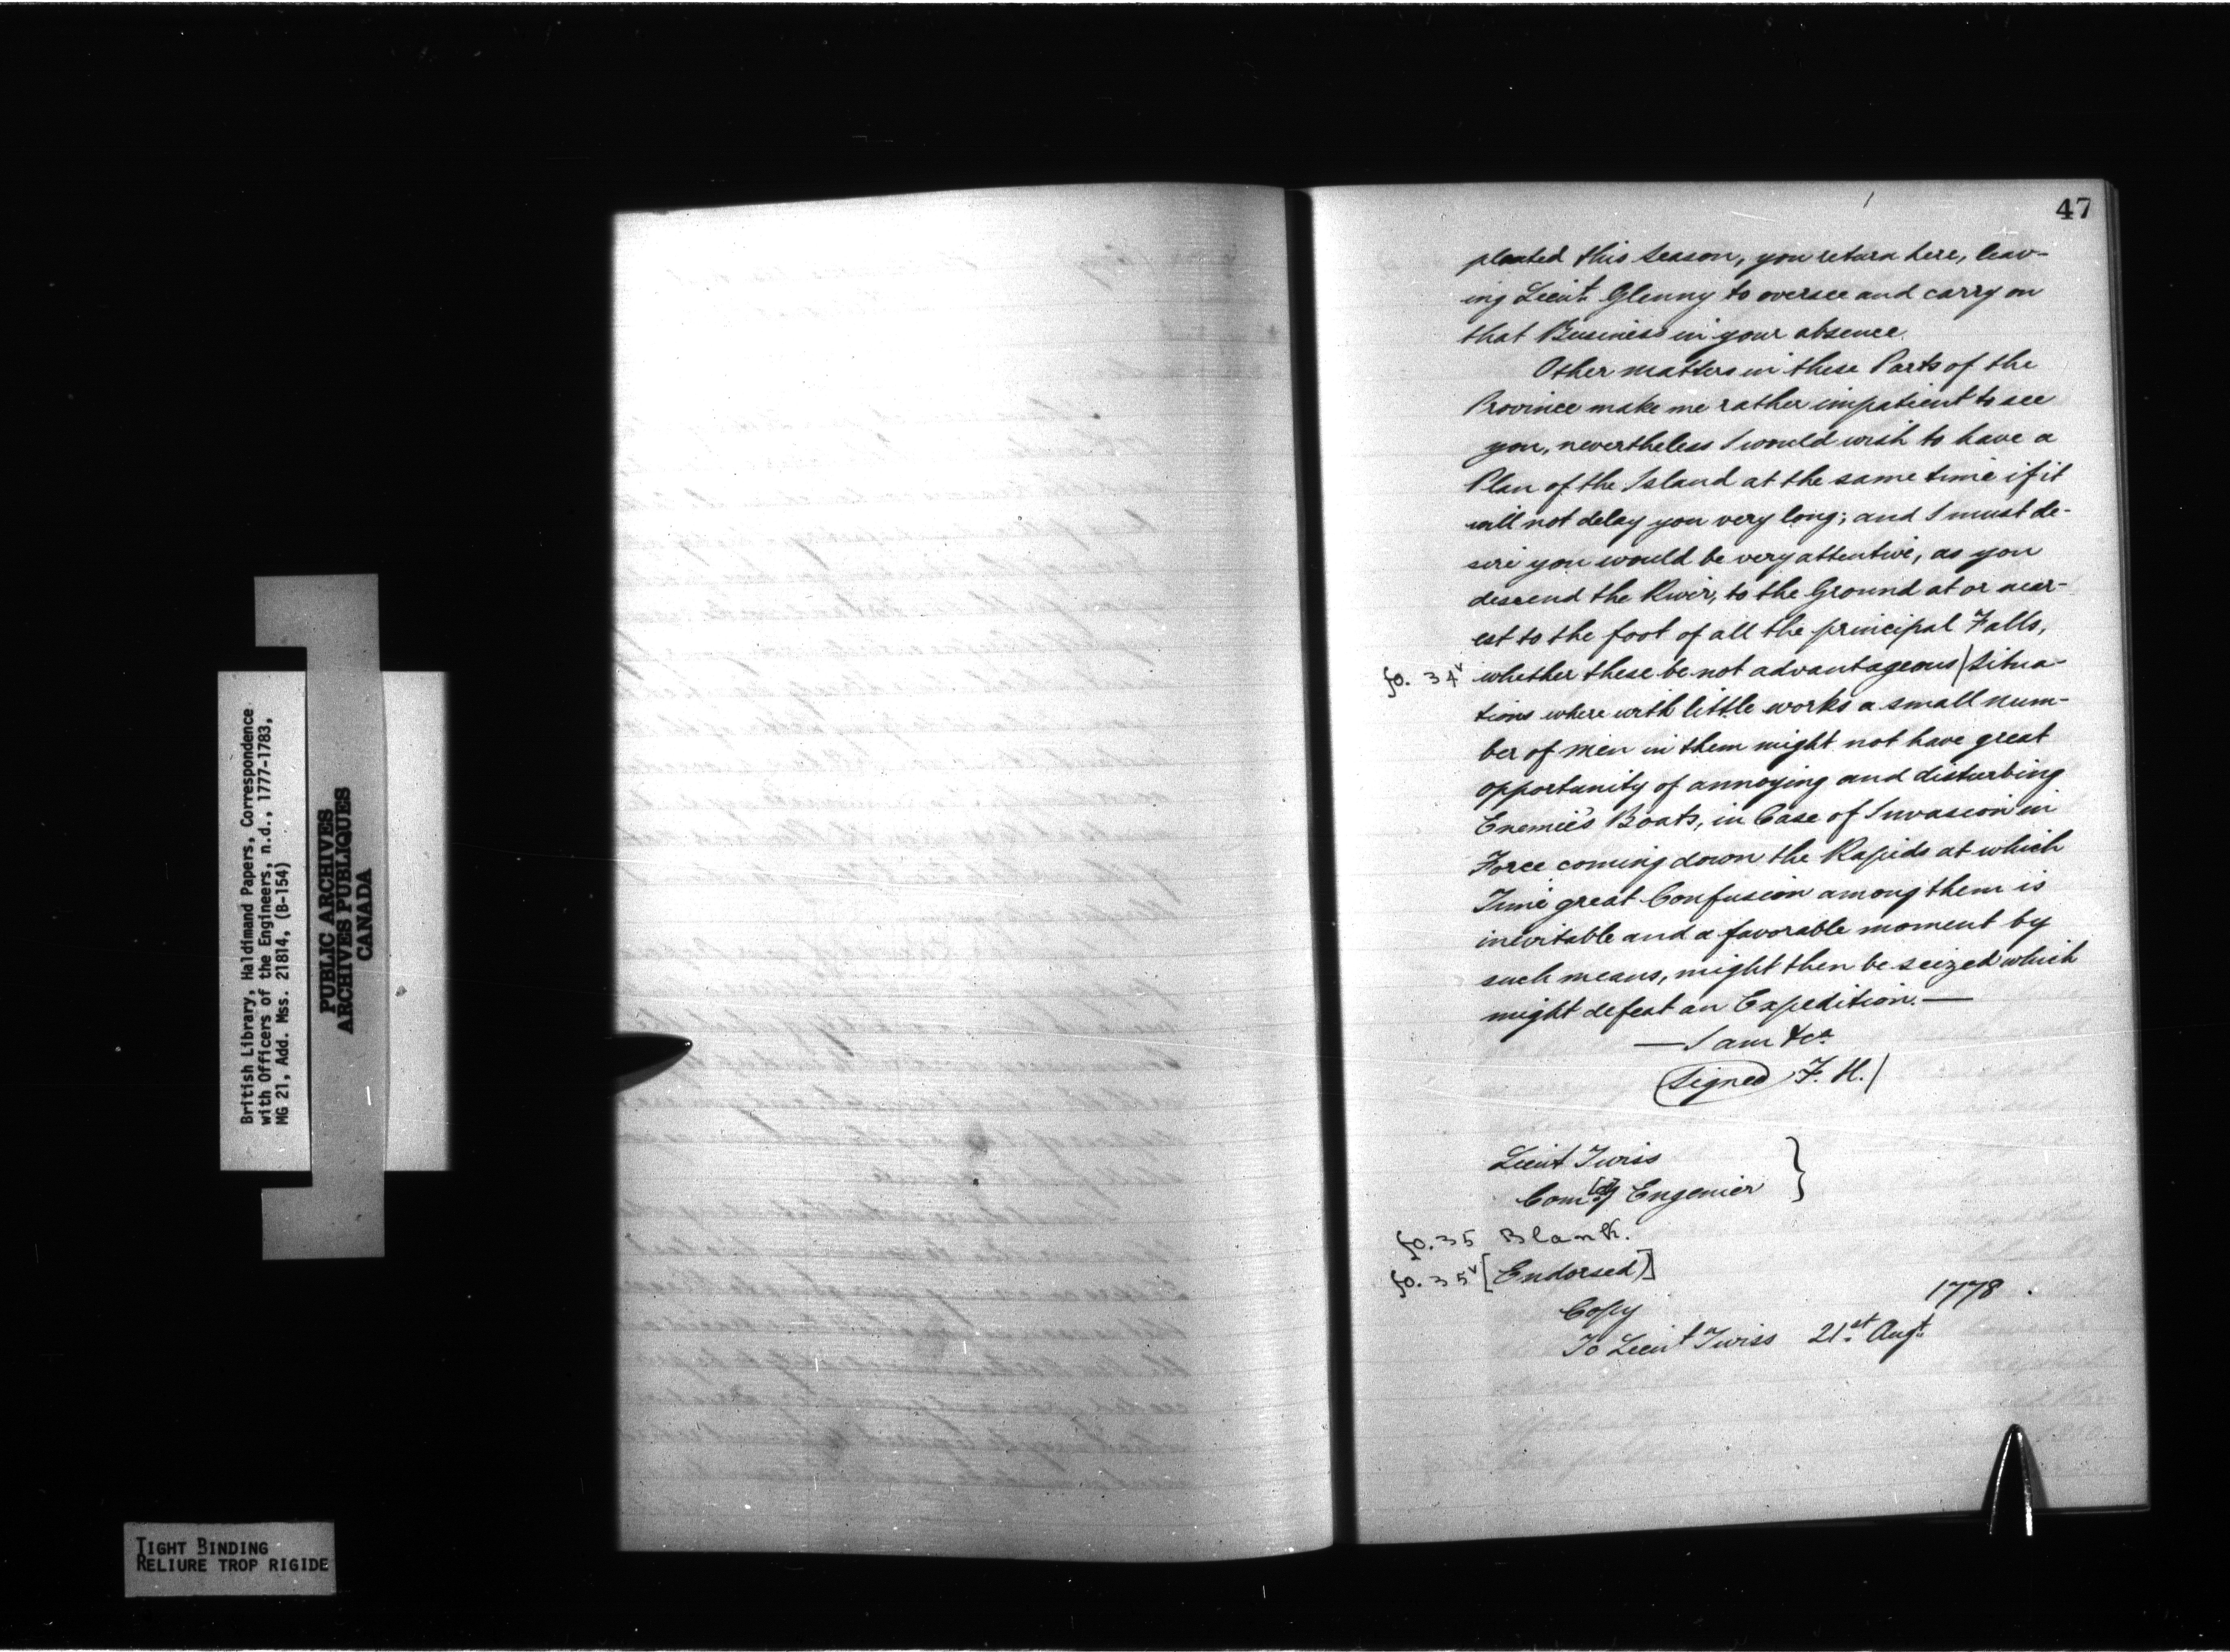 British Library, Haldimand Papers, Correspondence
with Officers of the Engineers, n.d., 1777-1783,
MG 21, Add. Mss. 21814, (B-154)
PUBLIC ARCHIVES
ARCHIVES PUBLIQUES
CANADA
TIGHT BINDING
RELIURE TROP RIGIDE
47
pleated this Season, you return here, leav-
ing Lieut. Glenny to oversee and carry on
that Business in your absence.
Other matters in these Parts of the
Province make me rather impatient to see
you, nevertheless I would wish to have a
Plan of the Island at the same time if it
will not delay you very long; and I must de-
sire you would be very attentive, as you
descend the River, to the Ground at or near-
est to the foot of all the principal Falls,
fo. 34v whether these be not advantageous | Situa-
tions where with little works a small num-
ber of men in them might not have great
opportunity of annoying and disturbing
Enemie's Boats, in Case of Invasion in
Force coming down the Rapids at which
Time great Confusion among them is
inevitable and a favorable moment by
such means, might then be seized which
might defeat an Expedition. —
— I am &ca
(Signed) F. H. |
Lieut Twiss }
Comdg Engenier
fo. 35 Blank.
fo. 35v [Endorsed)]
Copy 1778
To Lieut Twiss 21st Augt.